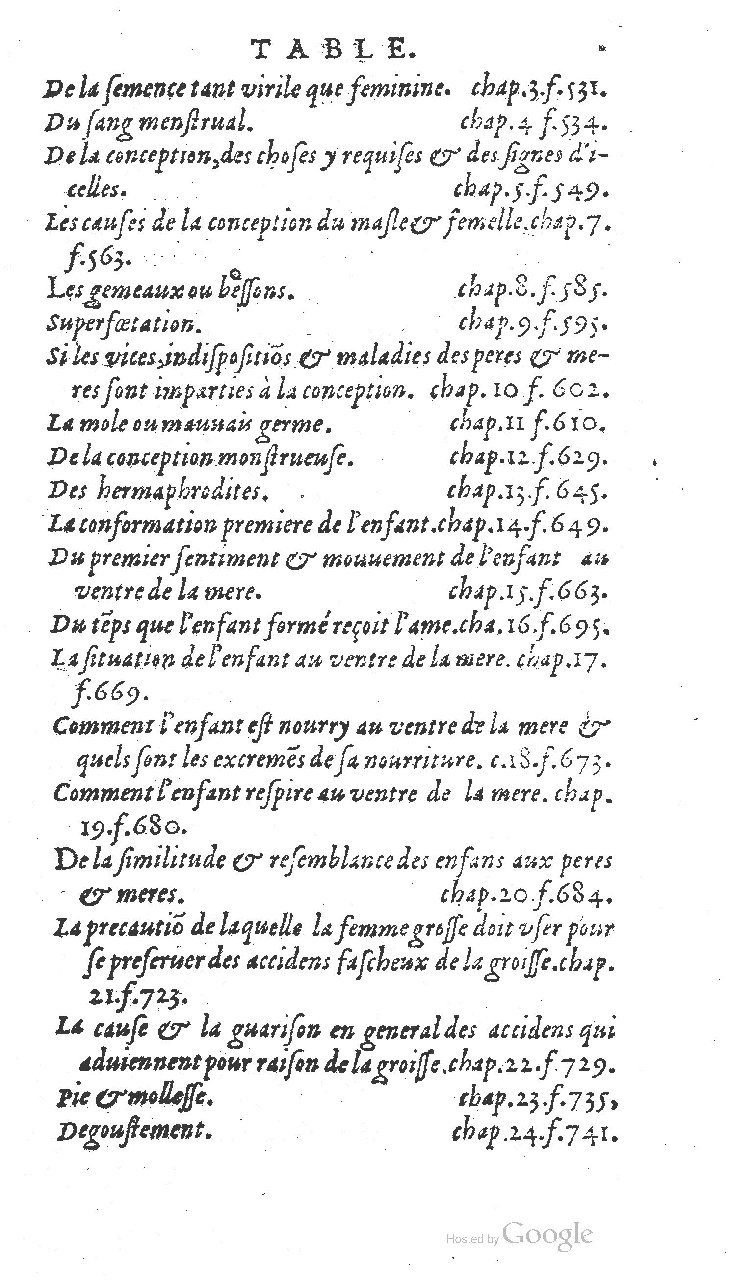 TABLE.
De la ſemence tant virile que feminine. chap.3.f.531.
Du ſang menſtrual. chap.4 f.534.
De la conception, des choſes y requiſes & des ſignes d'i-
celles. chap.5.f.549.
Les cauſes de la conception du maſle & femelle.chap.7.
f.563.
Les gemeaux ou beſſons. chap.8.f.585.
Superfœtation. chap.9.f.595.
Si les vices, indiſpoſitiōs & maladies des peres & me-
res ſont imparties à la conception. chap.10 f. 602.
La mole ou mauuais germe. chap.11 f.610.
De la conception monſtrueuſe. chap.12.f.629.
Des hermaphrodites. chap.13.f.645.
La conformation premiere de l'enfant.chap.14.f.649.
Du premier ſentiment & mouuement de l'enfant au
ventre de la mere. chap.15.f.663.
Du tēps que l'enfant formé reçoit l'ame.cha.16.f.695.
La ſituation de l'enfant au ventre de la mere. chap.17.
f.669.
Comment l'enfant eſt nourry au ventre de la mere &
quels ſont les excremēs de ſa nourriture. c.18.f.673.
Comment l'enfant reſpire au ventre de la mere. chap.
19.f.680.
De la ſimilitude & reſemblance des enfans aux peres
& meres. chap.20.f.684.
La precautiō de laquelle la femme groſſe doit vſer pour
ſe preſeruer des accidens faſcheux de la groiſſe.chap.
21.f.723.
La cauſe & la guariſon en general des accidens qui
aduiennent pour raiſon de la groiſſe.chap.22.f.729.
Pie & molleſſe. chap.23.f.735,
Degouſtement. chap.24.f.741.
Hosted by Google